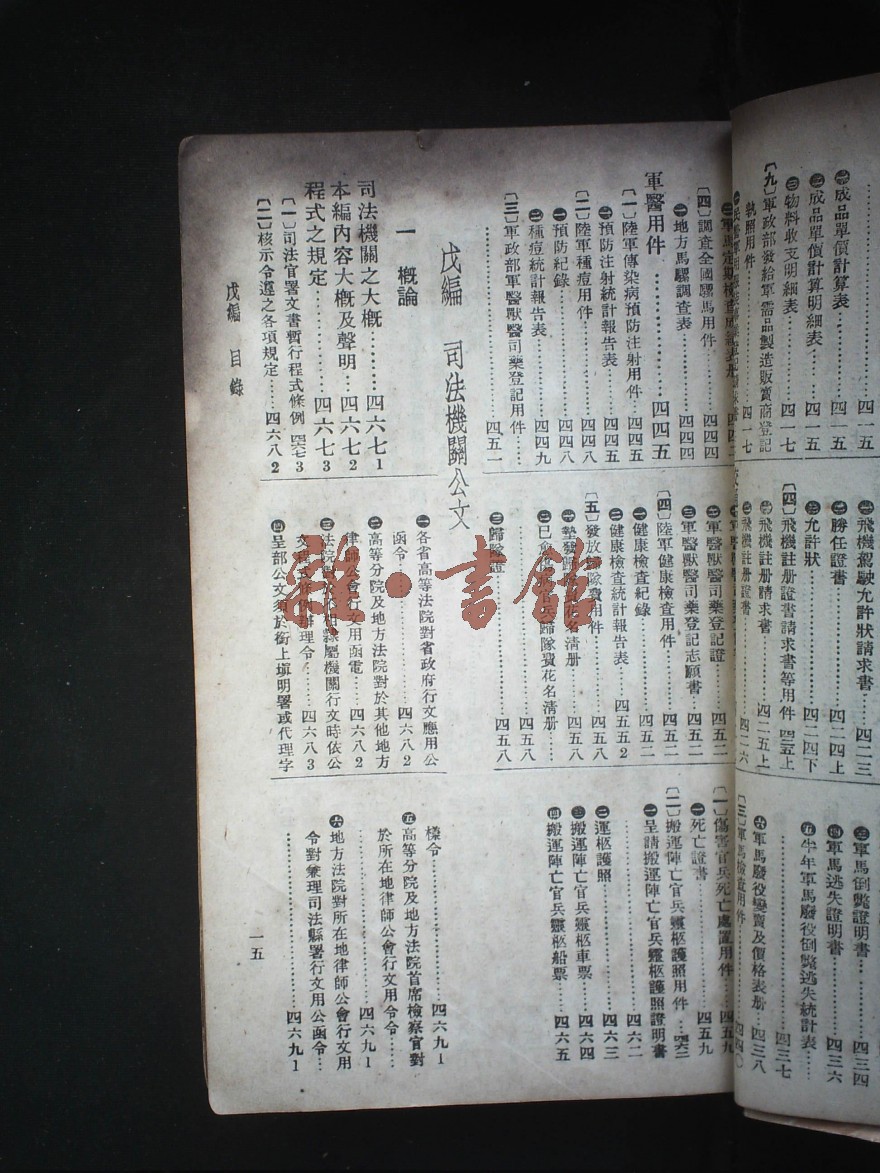 成品單價計算表……四一五
成品單價計算明細表……四一五
物料收支明細表……四一七
〔九〕軍政部發給軍需品製造販賣商登記
執照用件……四一七
飛機駕駛允許狀請求書……四二三
勝任證書……四二四上
允許狀……四二四下
〔四〕飛機註冊證書請求書等用件 四二五上
飛機註冊請求書……四二五上
飛機註冊證書……四二六
軍馬倒斃證明書……四三四
軍馬逃失證明書……四三六
㊄半年軍馬廢役倒斃逃失統計表……
……四三七
㊅軍馬廢役變賣及價格表册……四三八
〔三〕軍馬檢查用件……四四〇
〔四〕調查全國騾馬用件……四四四
㊀地方馬騾調查表……四四四
軍醫用件……四四五
〔一〕陸軍傳染病預防注射用件……四四五
㊀預防注射統計報告表……四四五
〔二〕陸軍種痘用件……四四八
㊀預防紀錄……四四八
㊁種痘統計報告表……四四九
〔三〕軍政部軍醫獸醫司藥登記用件……
……四五一
㊁軍醫獸醫司藥登記證……四五二
㊂軍醫獸醫司藥登記志願書……四五二
〔四〕陸軍健康檢查用件……四五二
㊀健康檢查紀錄……四五二
㊁健康檢查統計報告表……四五五2
〔五〕發放歸隊費用件……四五八
㊀墊發歸隊費花名清册……四五八
㊁已愈傷病官兵歸隊費花名清册……
……四五八
㊂歸隊證……四五八
〔一〕傷害官兵死亡處置用件……四五九
㊀死亡證書……四五九
〔二〕搬運陣亡官兵靈柩護照用件…四六二
㊀呈請搬運陣亡官兵靈柩護照證明書
……四六二
㊁運柩護照……四六三
㊂搬運陣亡官兵靈柩車票……四六四
㊃搬運陣亡官兵靈柩船票……四六五
戊編 司法機關公文
一 概論
司法機關之大概……四六七1
本編內容大概及聲明…四六七2
程式之規定……四六七3
〔一〕司法官署文書暫行程式條例 四六七3
〔二〕核示令遵之各項規定……四六八2
㊀各省高等法院對省政府行文應用公
函令……四六八2
㊁高等分院及地方法院對於其他地方
律師公會行文用函電……四六八2
㊂法院對於不相隸屬機關行文時依公
文程式條例辦理令……四六八3
㊃呈部公文須於銜上塡明署或代理字
樣令……四六九1
㊄高等分院及地方法院首席檢察官對
於所在地律師公會行文用令令……
……四六九1
㊅地方法院對所在地律師公會行文用
令對兼理司法縣署行文用公函令……
……四六九1
戊編 目錄
一五
雜·書館